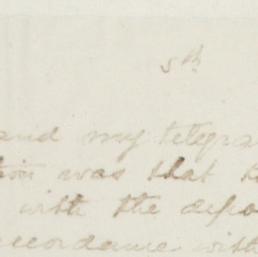 5th
and my telegra
tion was that
with the depa
ccordance with